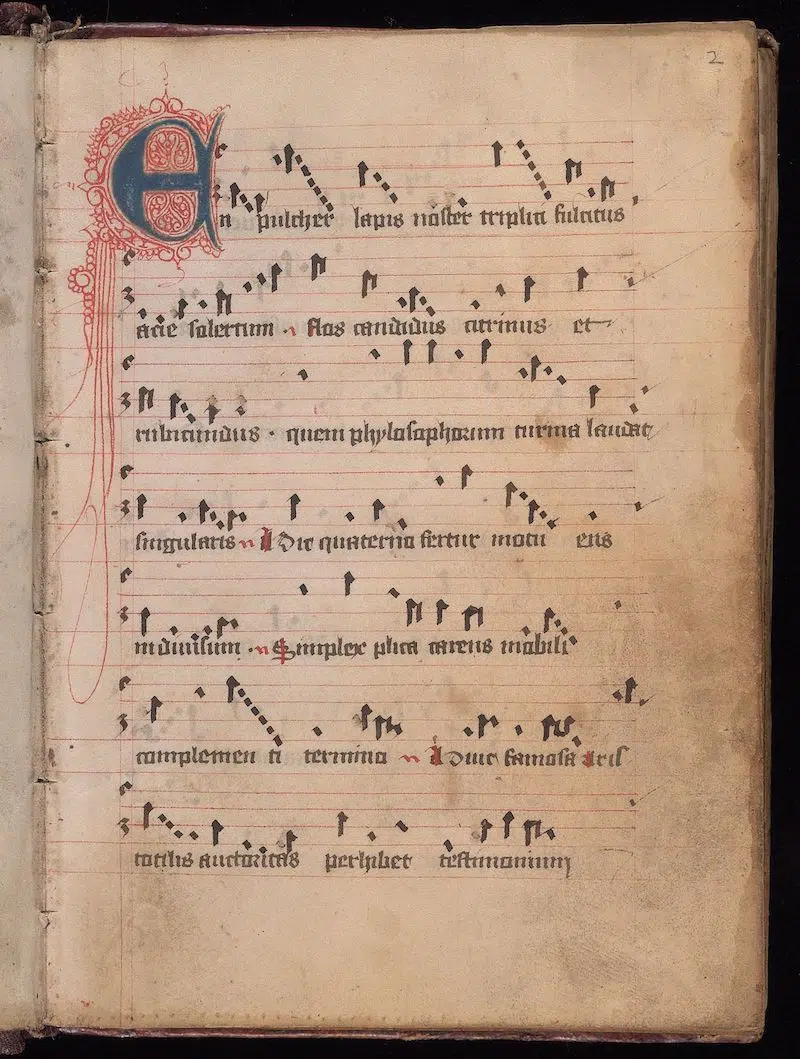 2
En pulcher lapis noster triplici fulcitus
acie solertum · flos candidus citrinus et
rubicundus · quem phylosophorum turma laudat
singularis Hic quaterno fertur motu ens
indiuisum · Simplex plica carens mobili
complemen ti termino Huic famosa aris
totilis auctoritas perhibet testimonium